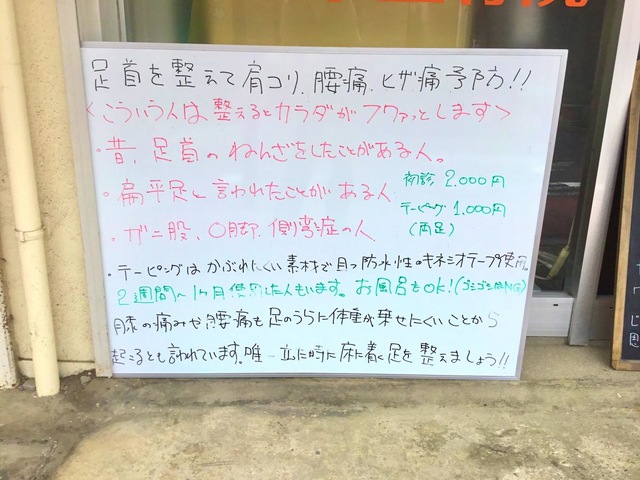 足首を整えて肩コリ、腰痛、ヒザ痛予防!!
<こういう人は整えるとカラダがフワァッとします>
・昔、足首のねんざをしたことがある人。
・扁平足と言われたことがある人
・ガニ股、O脚、側弯症の人
初診 2.000円
テーピング 1.000円
(両足)
・テーピングはかぶれにくい素材で且つ防水性のキネシオテープ使用。
2週間~1ヶ月使用した人もいます。お風呂もOK!(ゴシゴシはNG)
膝の痛みや腰痛も足のうらに体重が乗せにくいことから
起こるとも言われています。唯一立た時に床に着く足を整えましょう!!